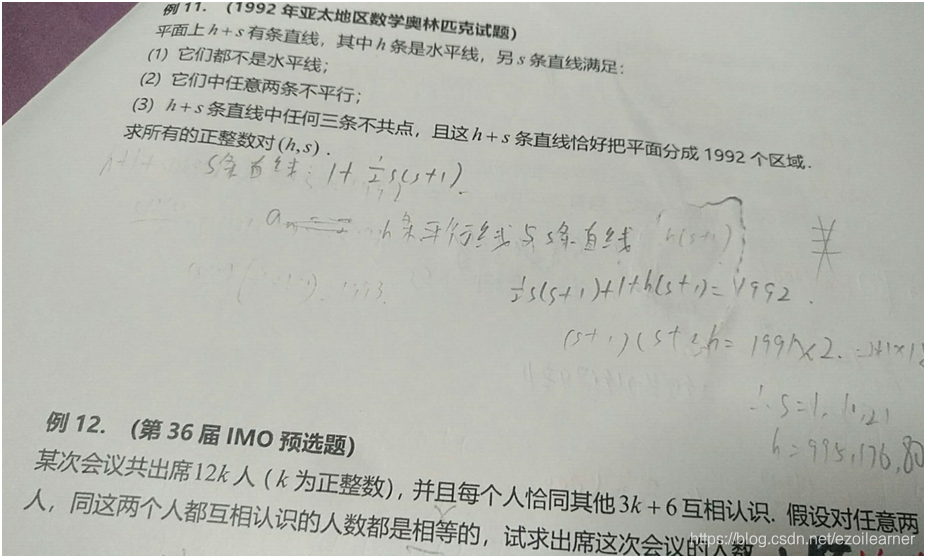 例 11. (1992 年亚太地区数学奥林匹克试题)
平面上 h + s 有条直线，其中 h 条是水平线，另 s 条直线满足：
(1) 它们都不是水平线；
(2) 它们中任意两条不平行；
(3) h + s 条直线中任何三条不共点，且这 h + s 条直线恰好把平面分成 1992 个区域.
求所有的正整数对 (h, s) .
s条直线：1 + 1/2 s(s+1)
h 条平行线与 s条直线 h(s+1)
1/2 s(s+1)+1+h(s+1)= 1992 .
= 1991×2.
∴ s=1, 11, 21
h = 995, 176, 80
例 12. (第 36 届 IMO 预选题)
某次会议共出席 12k 人 ( k 为正整数), 并且每个人恰同其他 3k + 6 互相认识. 假设对任意两
人，同这两个人都互相认识的人数都是相等的，试求出席这次会议的人数
https://blog.csdn.net/ezoilearner